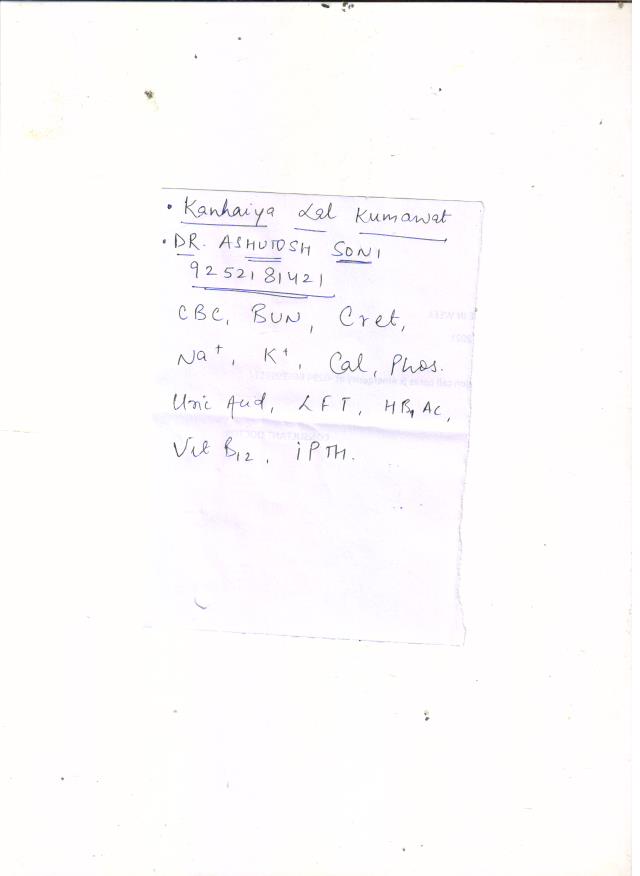 • Kanhaiya Lal Kumawat
• DR. ASHUTOSH SONI
9252181421
CBC, BUN, Cret,
Na⁺, K⁺, Cal, Phos.
Uric Acid, LFT, HB₁AC,
Vit B₁₂, iPTH.